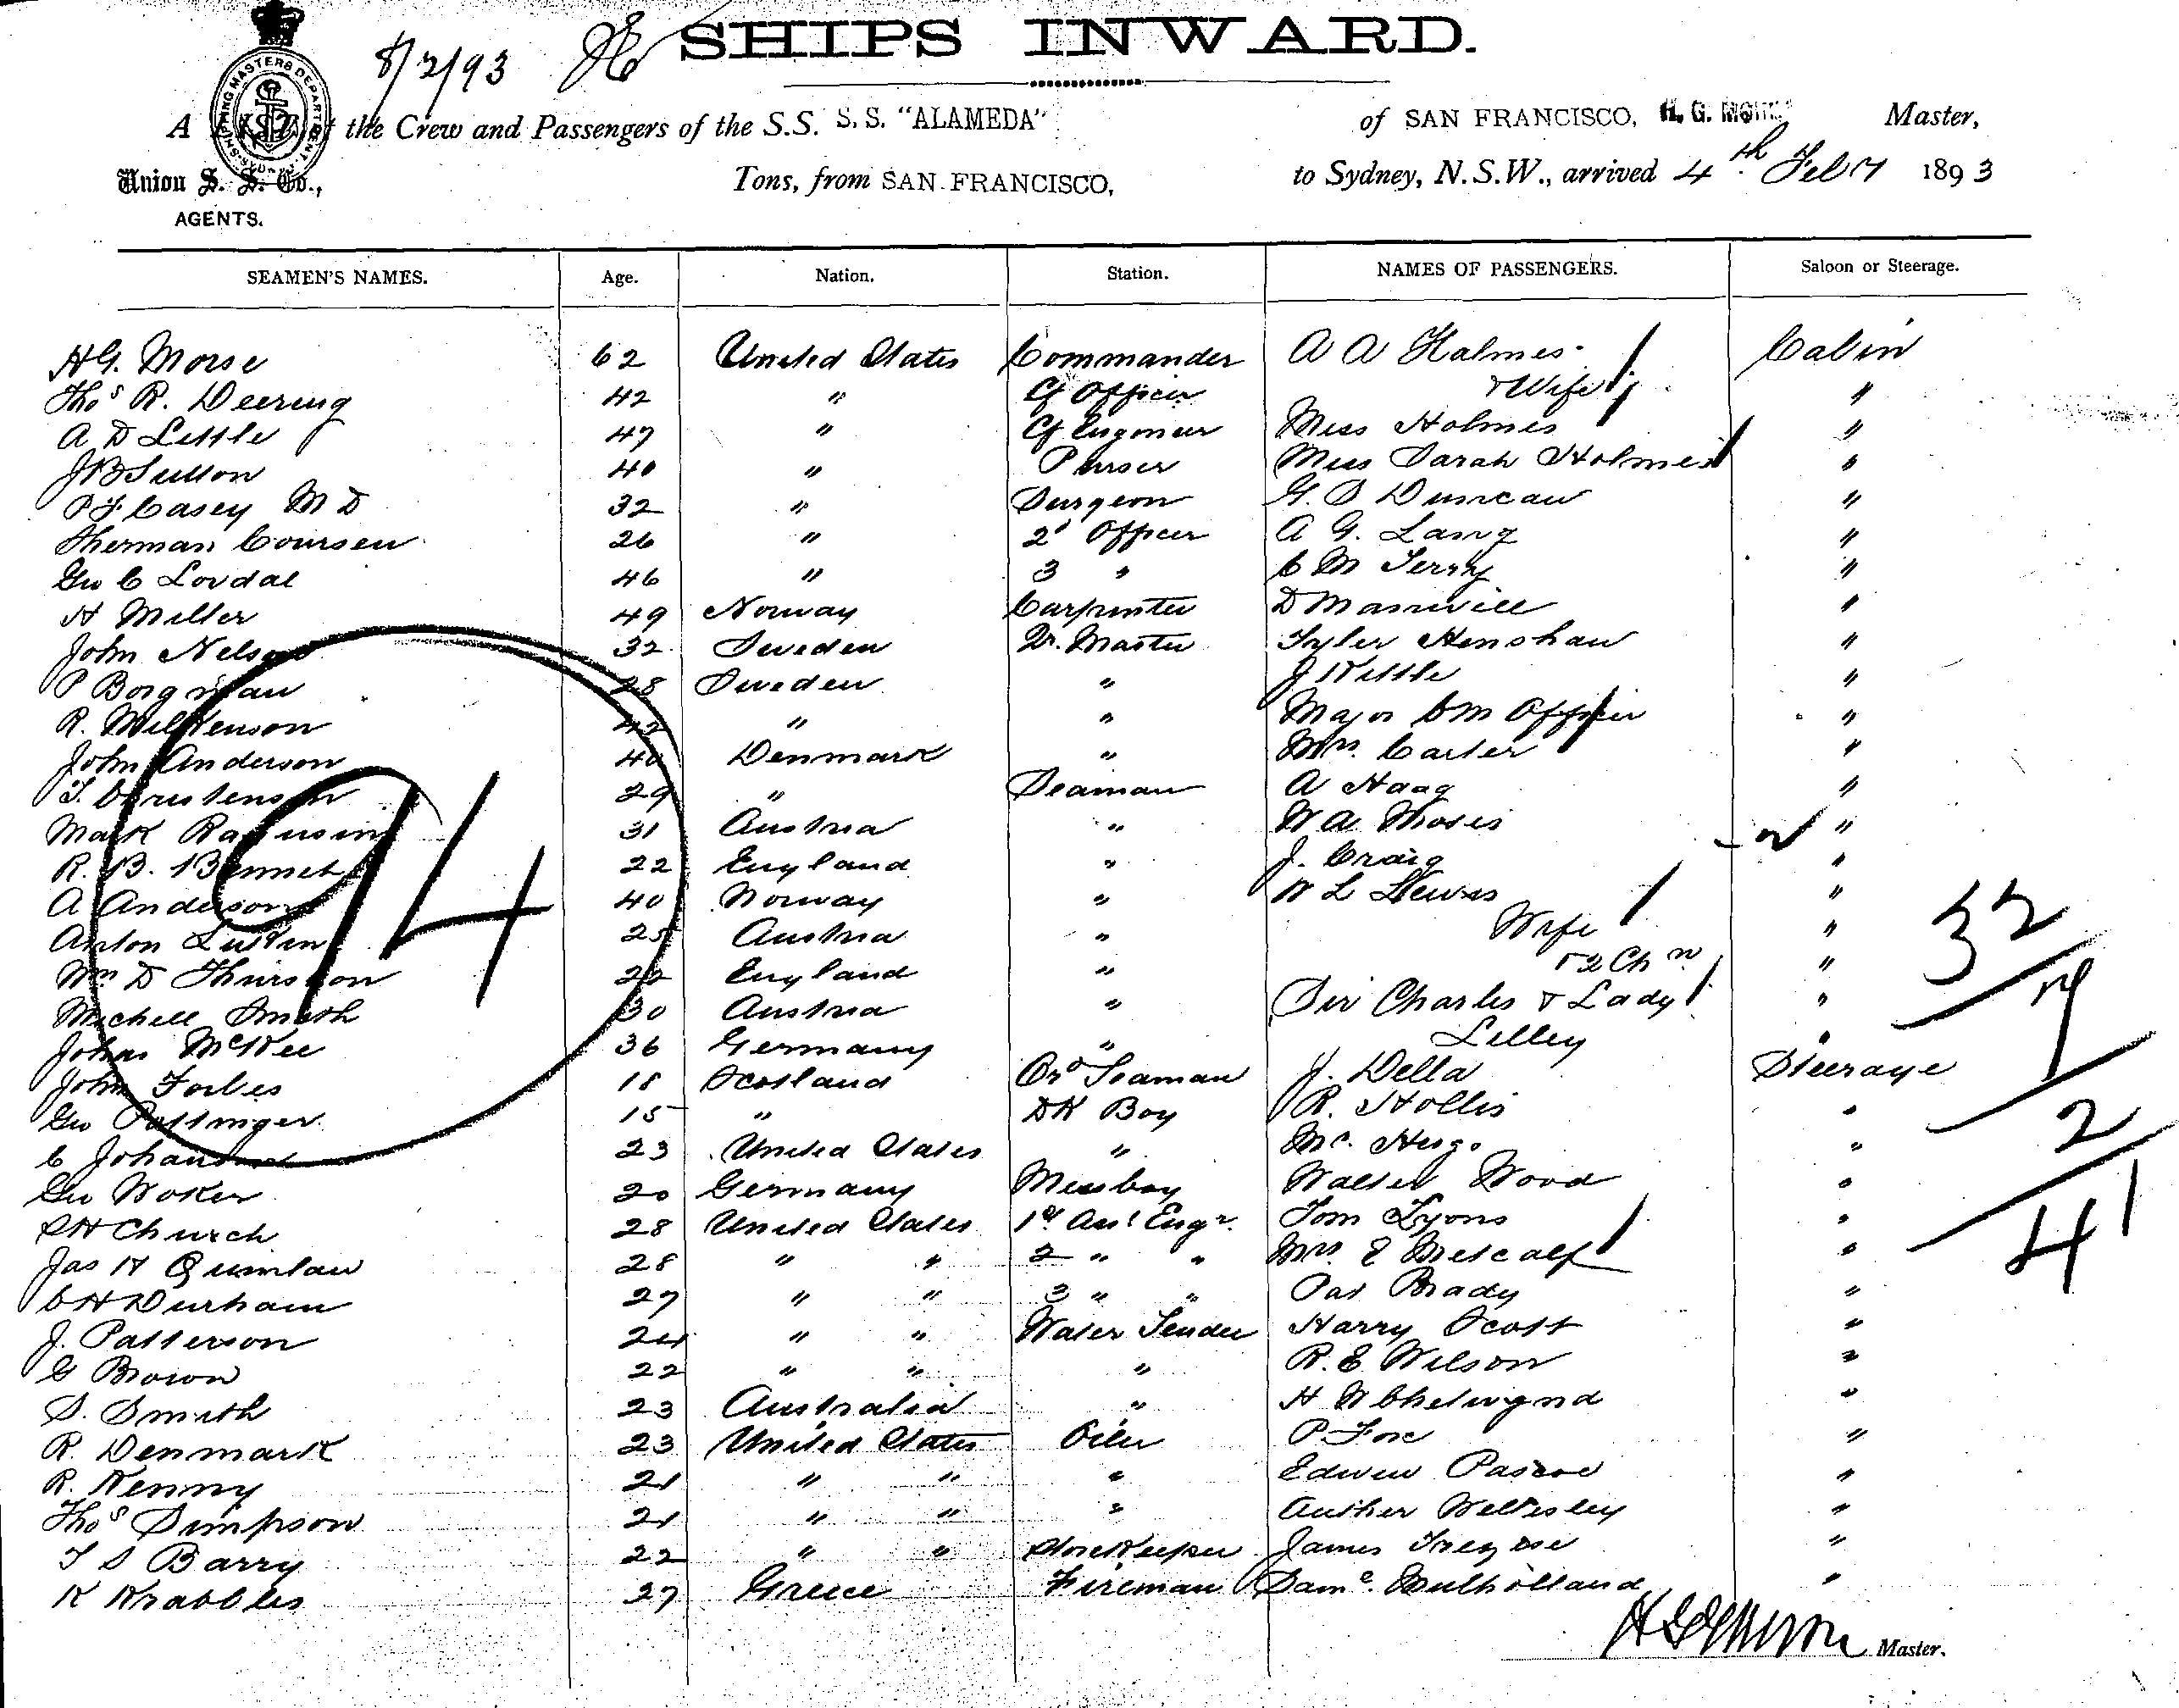 8/2/93 SHIPS INWARD.
A LIST of the Crew and Passengers of the S.S. S.S. "ALAMEDA" of SAN FRANCISCO, H. G. Master,
Union S. S. Co., Tons, from SAN FRANCISCO, to Sydney, N.S.W., arrived 4th Feby 1893
AGENTS.
SEAMEN'S NAMES. Age. Nation. Station. NAMES OF PASSENGERS. Saloon or Steerage.
HG. Morse 62 United States Commander A A Holmes Cabin
Thos R. Deering 42 " Cf Officer & Wife "
A D Little 47 " Cf Engineer Miss Holmes "
JB Sutton 40 " Purser Miss Sarah Holmes "
P F Casey M D 32 " Surgeon G. S Duncan "
Sherman Coursen 26 " 2d Officer A G. Lang "
Geo C Lovdal 46 " 3 " C M Terry "
H Miller 49 Norway Carpenter D "
John Nelson 32 Sweden Qr. Master Tyler Henshaw "
P Borgman 28 Sweden " J Kittle "
R. Wilkenson 42 " " Major CM Officer "
John Anderson 40 Denmark " Mrs. Carter "
T. Christensen 29 " Seaman A Haag "
Mark 31 Austria " W A Moses "
R. B. Bennet 22 England " J. Craig "
A Anderson 40 Norway " W L Lewis "
Anton 25 Austria " Wife "
Wm D Thurston 22 England " & 2 Chn "
Michell Smith 30 Austria " Sir Charles & Lady "
Johns McKee 36 Germany " Lilley "
John Forbes 18 Scotland Ord Seaman J. Della Steerage
Geo Pottinger 15 " DK Boy R. Hollis "
C 23 United States " Mc. Hugo "
Geo Woker 20 Germany Messboy Walter Wood "
R H Church 28 United States 1st Asst Engr. Tom Lyons "
Jas H Quinlan 28 " " 2 " " Mrs. E Metcalf "
C H Durham 27 " " 3 " " Pat Brady "
J. Patterson 24 " " Water Tender Harry Scott "
G Brown 22 " " " R. E Wilson "
S. Smith 23 Australia " H W Chetwynd "
R. Denmark 23 United States Oiler P. Fox "
R. Kenny 21 " " " Edwin Pascoe "
Thos Simpson 21 " " " Auther Wellesley "
T S Barry 22 " " Storekeeper James "
K Krabbles 27 Greece Fireman Saml. Mulholland "
94
32
7
2
41
Master.